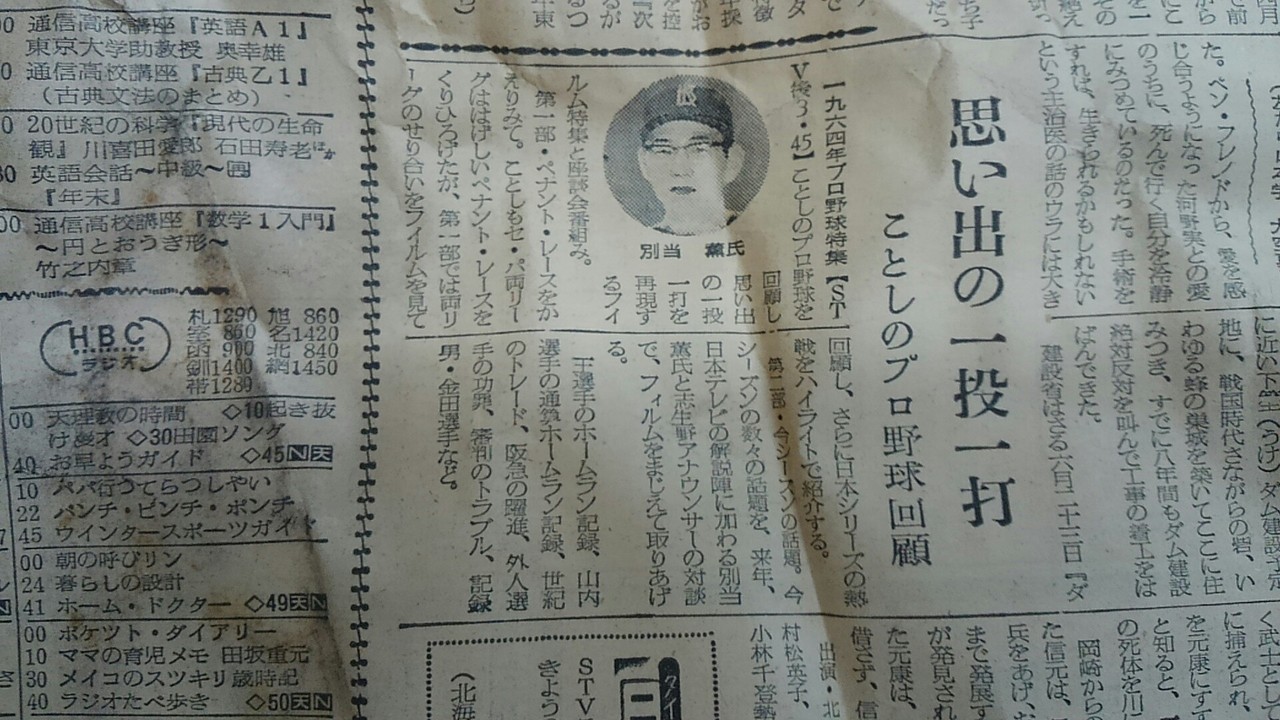 思い出の一投一打
ことしのプロ野球回顧
一九六四年プロ野球特集【ST
V後3・45】ことしのプロ野球を
回顧し
思い出
の一投
一打を
再現す
るフイ
ルム特集と座談会番組み。
第一部・ペナント・レースをか
えりみて。ことしもセ・パ両リー
グははげしいペナント・レースを
くりひろげたが、第一部では両リ
ーグのせり合いをフイルムを見て
別当 薫氏
回顧し、さらに日本シリーズの熱
戦をハイライトで紹介する。
第二部・今シーズンの話題。今
シーズンの数々の話題を、来年、
日本テレビの解説陣に加わる別当
薫氏と志生野アナウンサーの対談
で、フィルムをまじえて取りあげ
る。
王選手のホームラン記録、山内
選手の通算ホームラン記録、世紀
のトレード、阪急の躍進、外人選
手の功罪、審判のトラブル、記録
男・金田選手など。
た。ペン・フレンドから、愛を感
じ合うようになった河野実との愛
のうちに、死んで行く自分を冷静
にみつめているのだった。手術を
すれば、生きられるかもしれない
という主治医の話のウラには大き
地に、戦国時代さながらの砦、い
わゆる蜂の巣城を築いてここに住
みつき、すでに八年間もダム建設
絶対反対を叫んで工事の着工をは
ばんできた。
建設省はさる六月二十三日『ダ
く武士として
に捕えられ、
を元康にすす
と知ると、
の死体を川
岡崎からの
た信元は、
兵をあげ、
まで発展す
が発見され
た元康は、
借さず、信
出演・北
村松英子、
小林千登勢
STV
きよう
(北海
00 通信高校講座『英語A1』
東京大学助教授 奥幸雄
0 通信高校講座『古典乙1』
(古典文法のまとめ)
0 20世紀の科学『現代の生命
観』 川喜田愛郎 石田寿老ほか
30 英語会話~中級~
『年末』
00 通信高校講座『数学1入門』
~円とおうぎ形~
竹之内章
HBC
ラジオ
札1290 旭 860
室 860 名1420
函 900 北 840
釧1400 網1450
帯1280
00 天理教の時間 ◇10起き抜
け漫才 ◇30田園ソング
40 お早ようガイド ◇45N天
10 パパ行つてらつしやい
22 パンチ・ピンチ・ポンチ
45 ウインタースポーツガイド
00 朝の呼びリン
24 暮らしの設計
41 ホーム・ドクター ◇49天N
00 ポケツト・ダイアリー
10 ママの育児メモ 田坂重元
30 メイコのスツキリ歳時記
40 ラジオたべ歩き ◇50天N